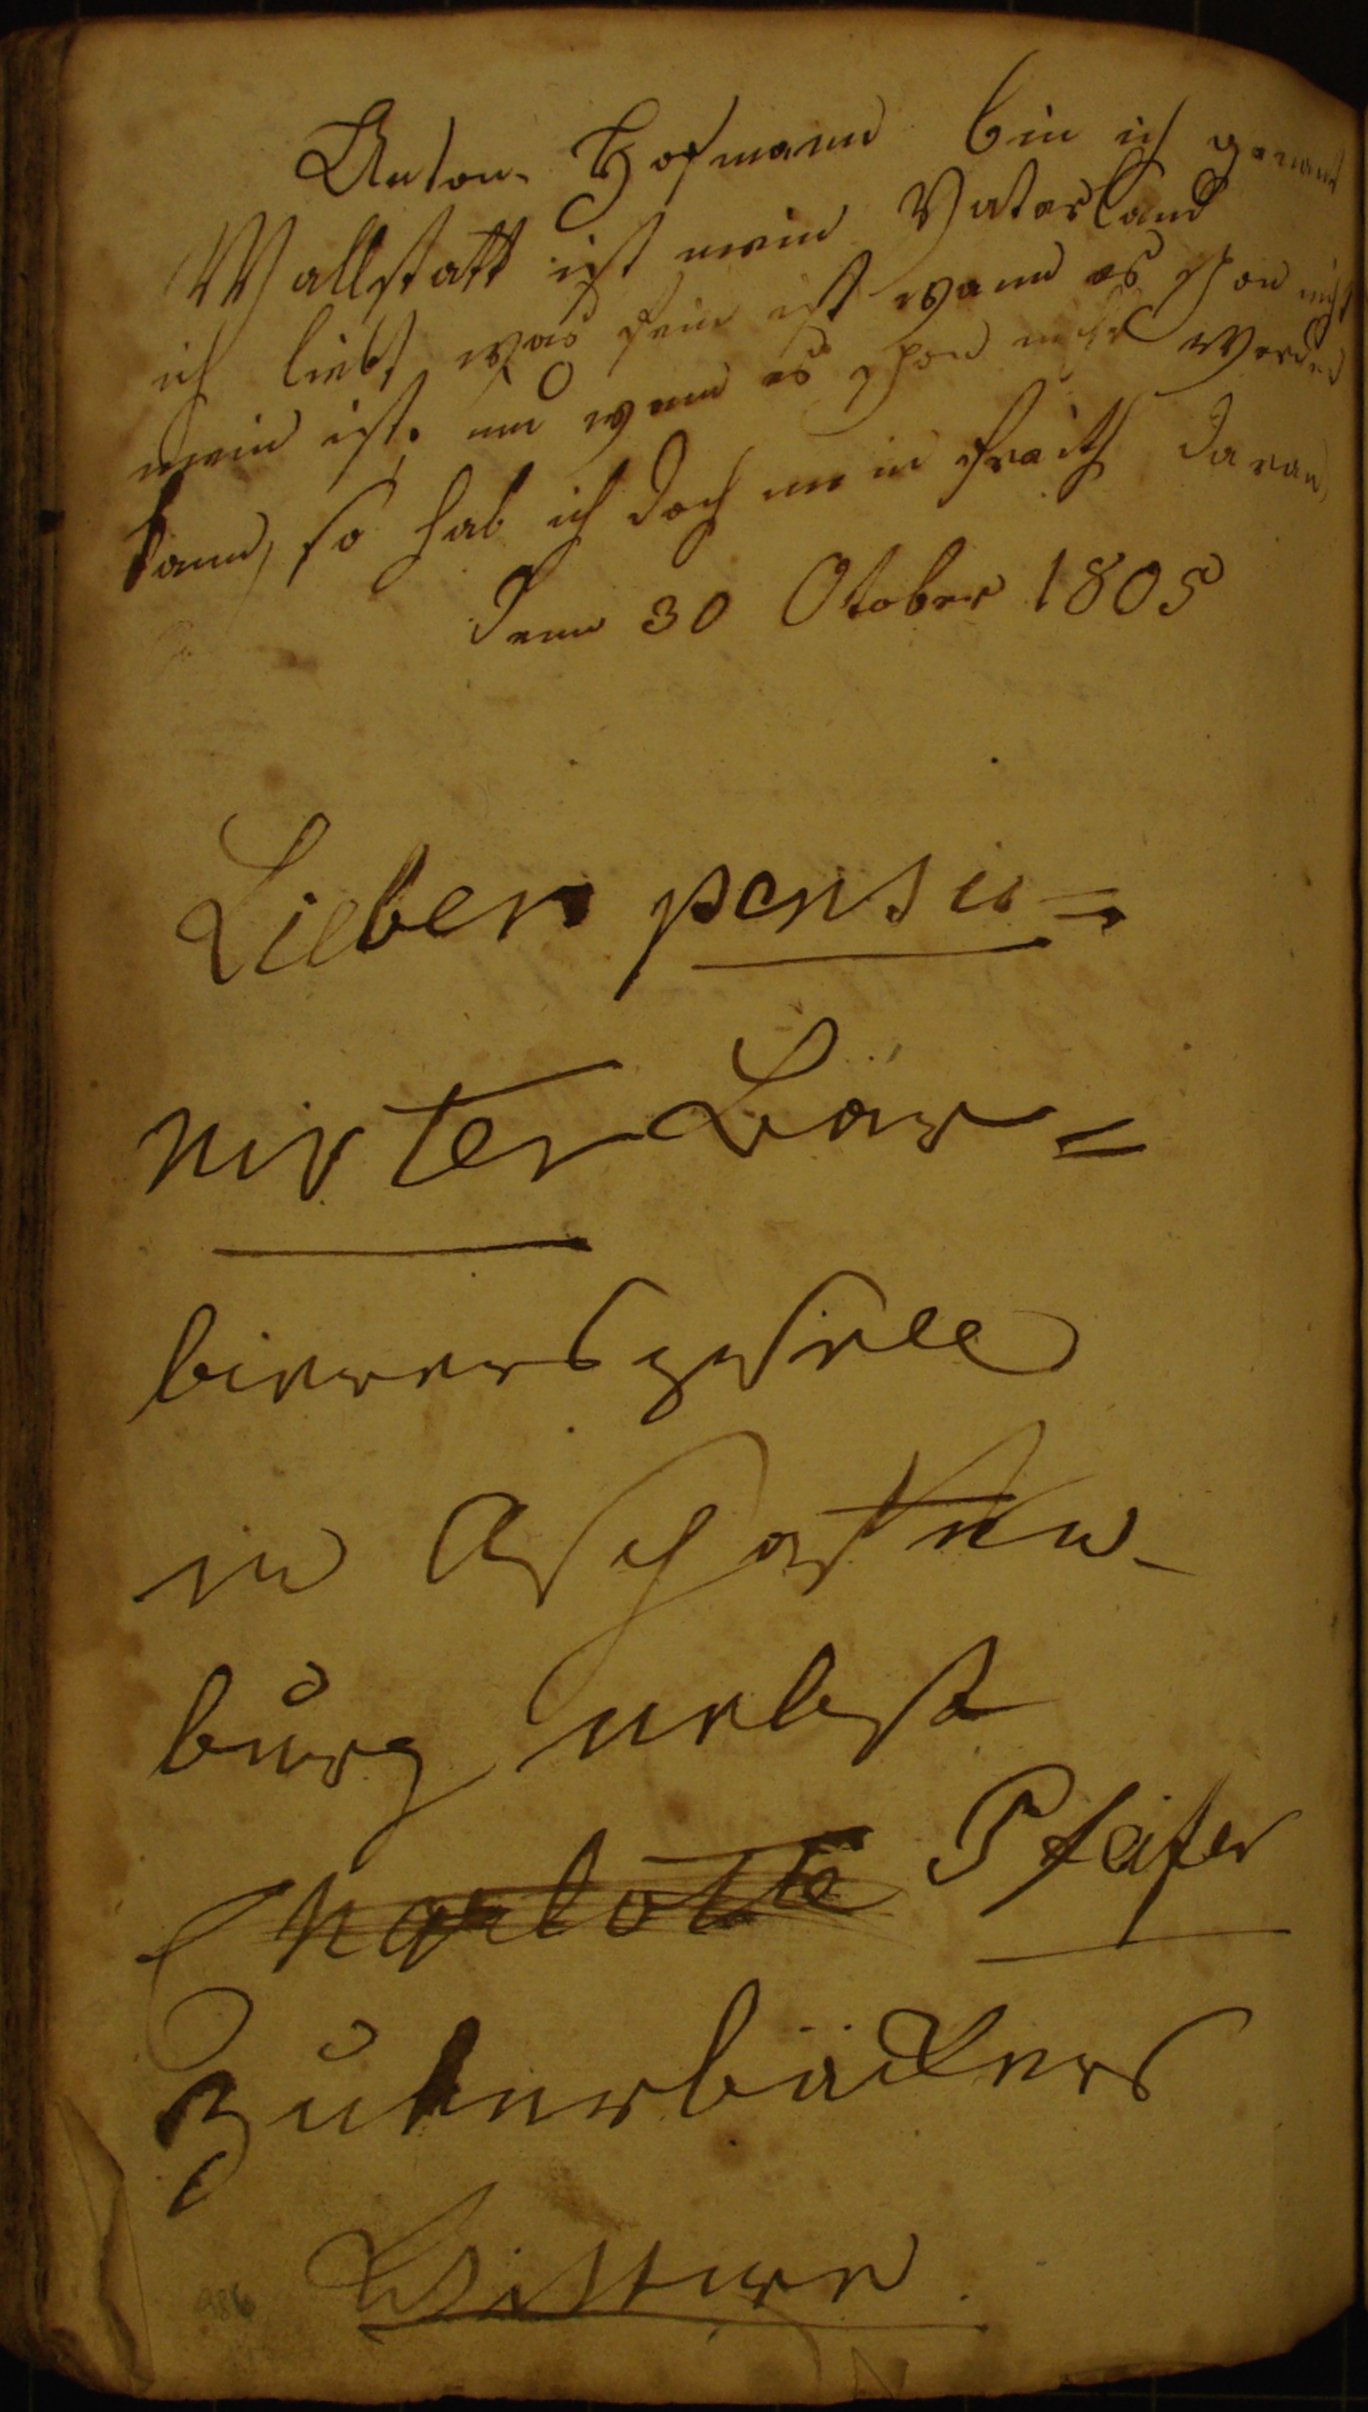 Anton Hofmann bin ich genant
Wallstatt ist mein Vaterland
ich liebt was fein ist wann es schon nicht
mein ist. und wann es schon nicht werden
kann, so hab ich doch mein freith daran,
Denn 30 Otober 1805
Lieber pensio=
nirter Bar=
bierers
in Aschaffen-
burg nebst
Charlotte Pfeifer
Zukerbäckers
Wittwe.
986